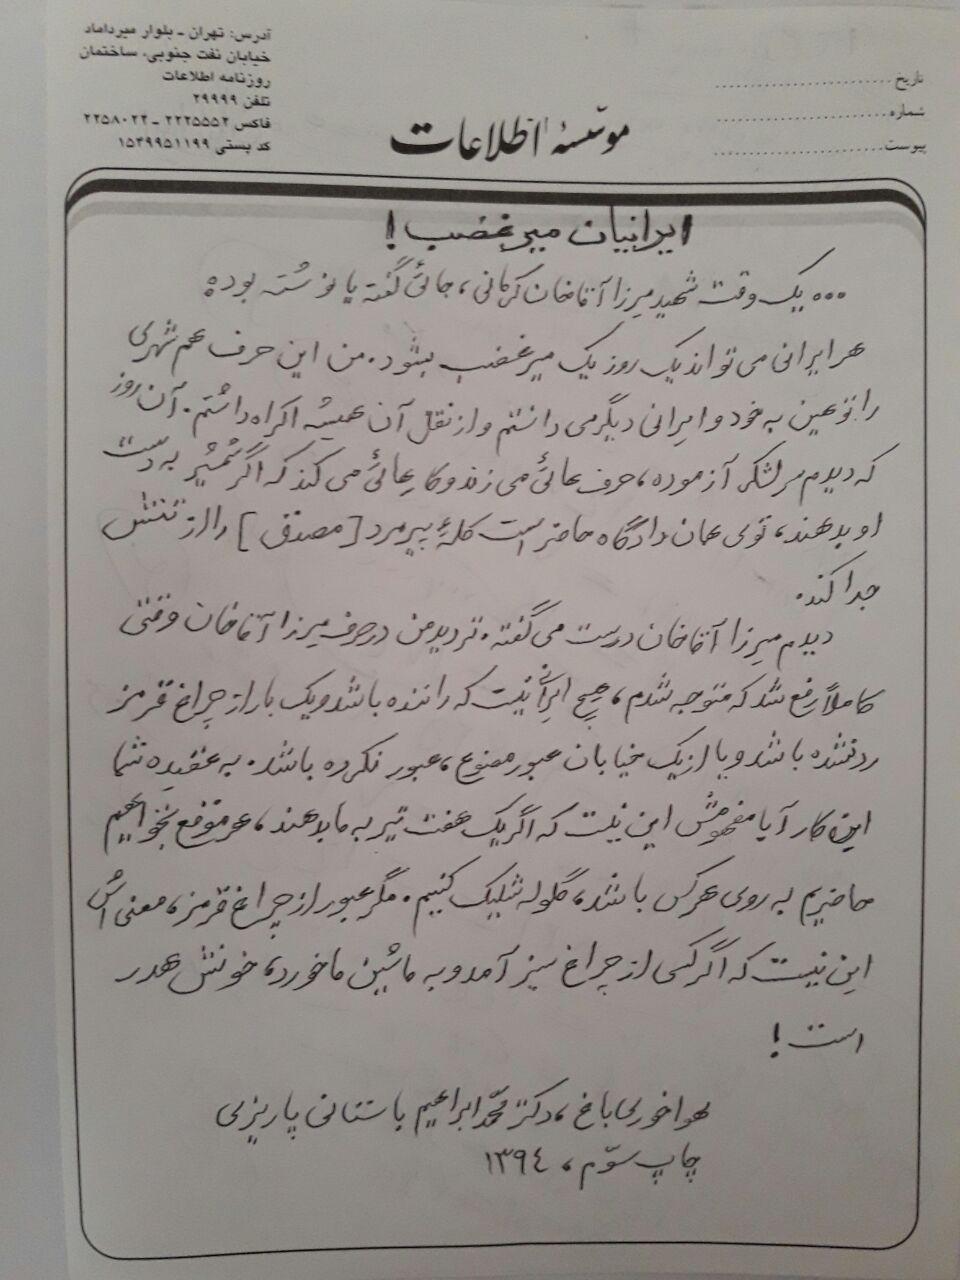 آدرس: تهران ـ بلوار میرداماد
خیابان نفت جنوبی، ساختمان
روزنامه اطلاعات
تلفن ۲۹۹۹۹
فاکس ۲۲۲۵۵۵۲ ـ ۲۲۵۸۰۲۲
کد پستی ۱۵۴۹۹۵۱۱۹۹
تاریخ
شماره
پیوست
موسّسهٔ اطلاعات
ایرانیان میرغضب!
... یک وقت شهید میرزا آقاخان کرمانی، جائی گفته یا نوشته بوده
هر ایرانی می تواند یک روز یک میرغضب بشود. من این حرف همشهری
را توهین به خود و ایرانی دیگر می دانستم و از نقل آن همیشه اکراه داشتم. آن روز
که دیدم سرلشکر آزموده، حرف هائی می زند و کارهائی می کند که اگر شمشیر به دست
او بدهند، توی همان دادگاه حاضر است کلهٔ پیرمرد [مصدق] را از تنش
جدا کند.
دیدم میرزا آقاخان درست می گفته. تردید من در حرف میرزا آقاخان وقتی
کاملاً رفع شد که متوجه شدم، هیچ ایرانی نیست که راننده باشد و یک بار از چراغ قرمز
رد نشده باشد و یا از یک خیابان عبور ممنوع، عبور نکرده باشد. به عقیده شما
این کار آیا مفهومش این نیست که اگر یک هفت تیر به ما بدهند، هر موقع بخواهیم
حاضریم به روی هر کس باشد، گلوله شلیک کنیم. مگر عبور از چراغ قرمز، معنی اش
این نیست که اگر کسی از چراغ سبز آمد و به ماشین ما خورد، خونش هدر
است!
هواخوری باغ، دکتر محمّد ابراهیم باستانی پاریزی
چاپ سوّم، ۱۳۹٤